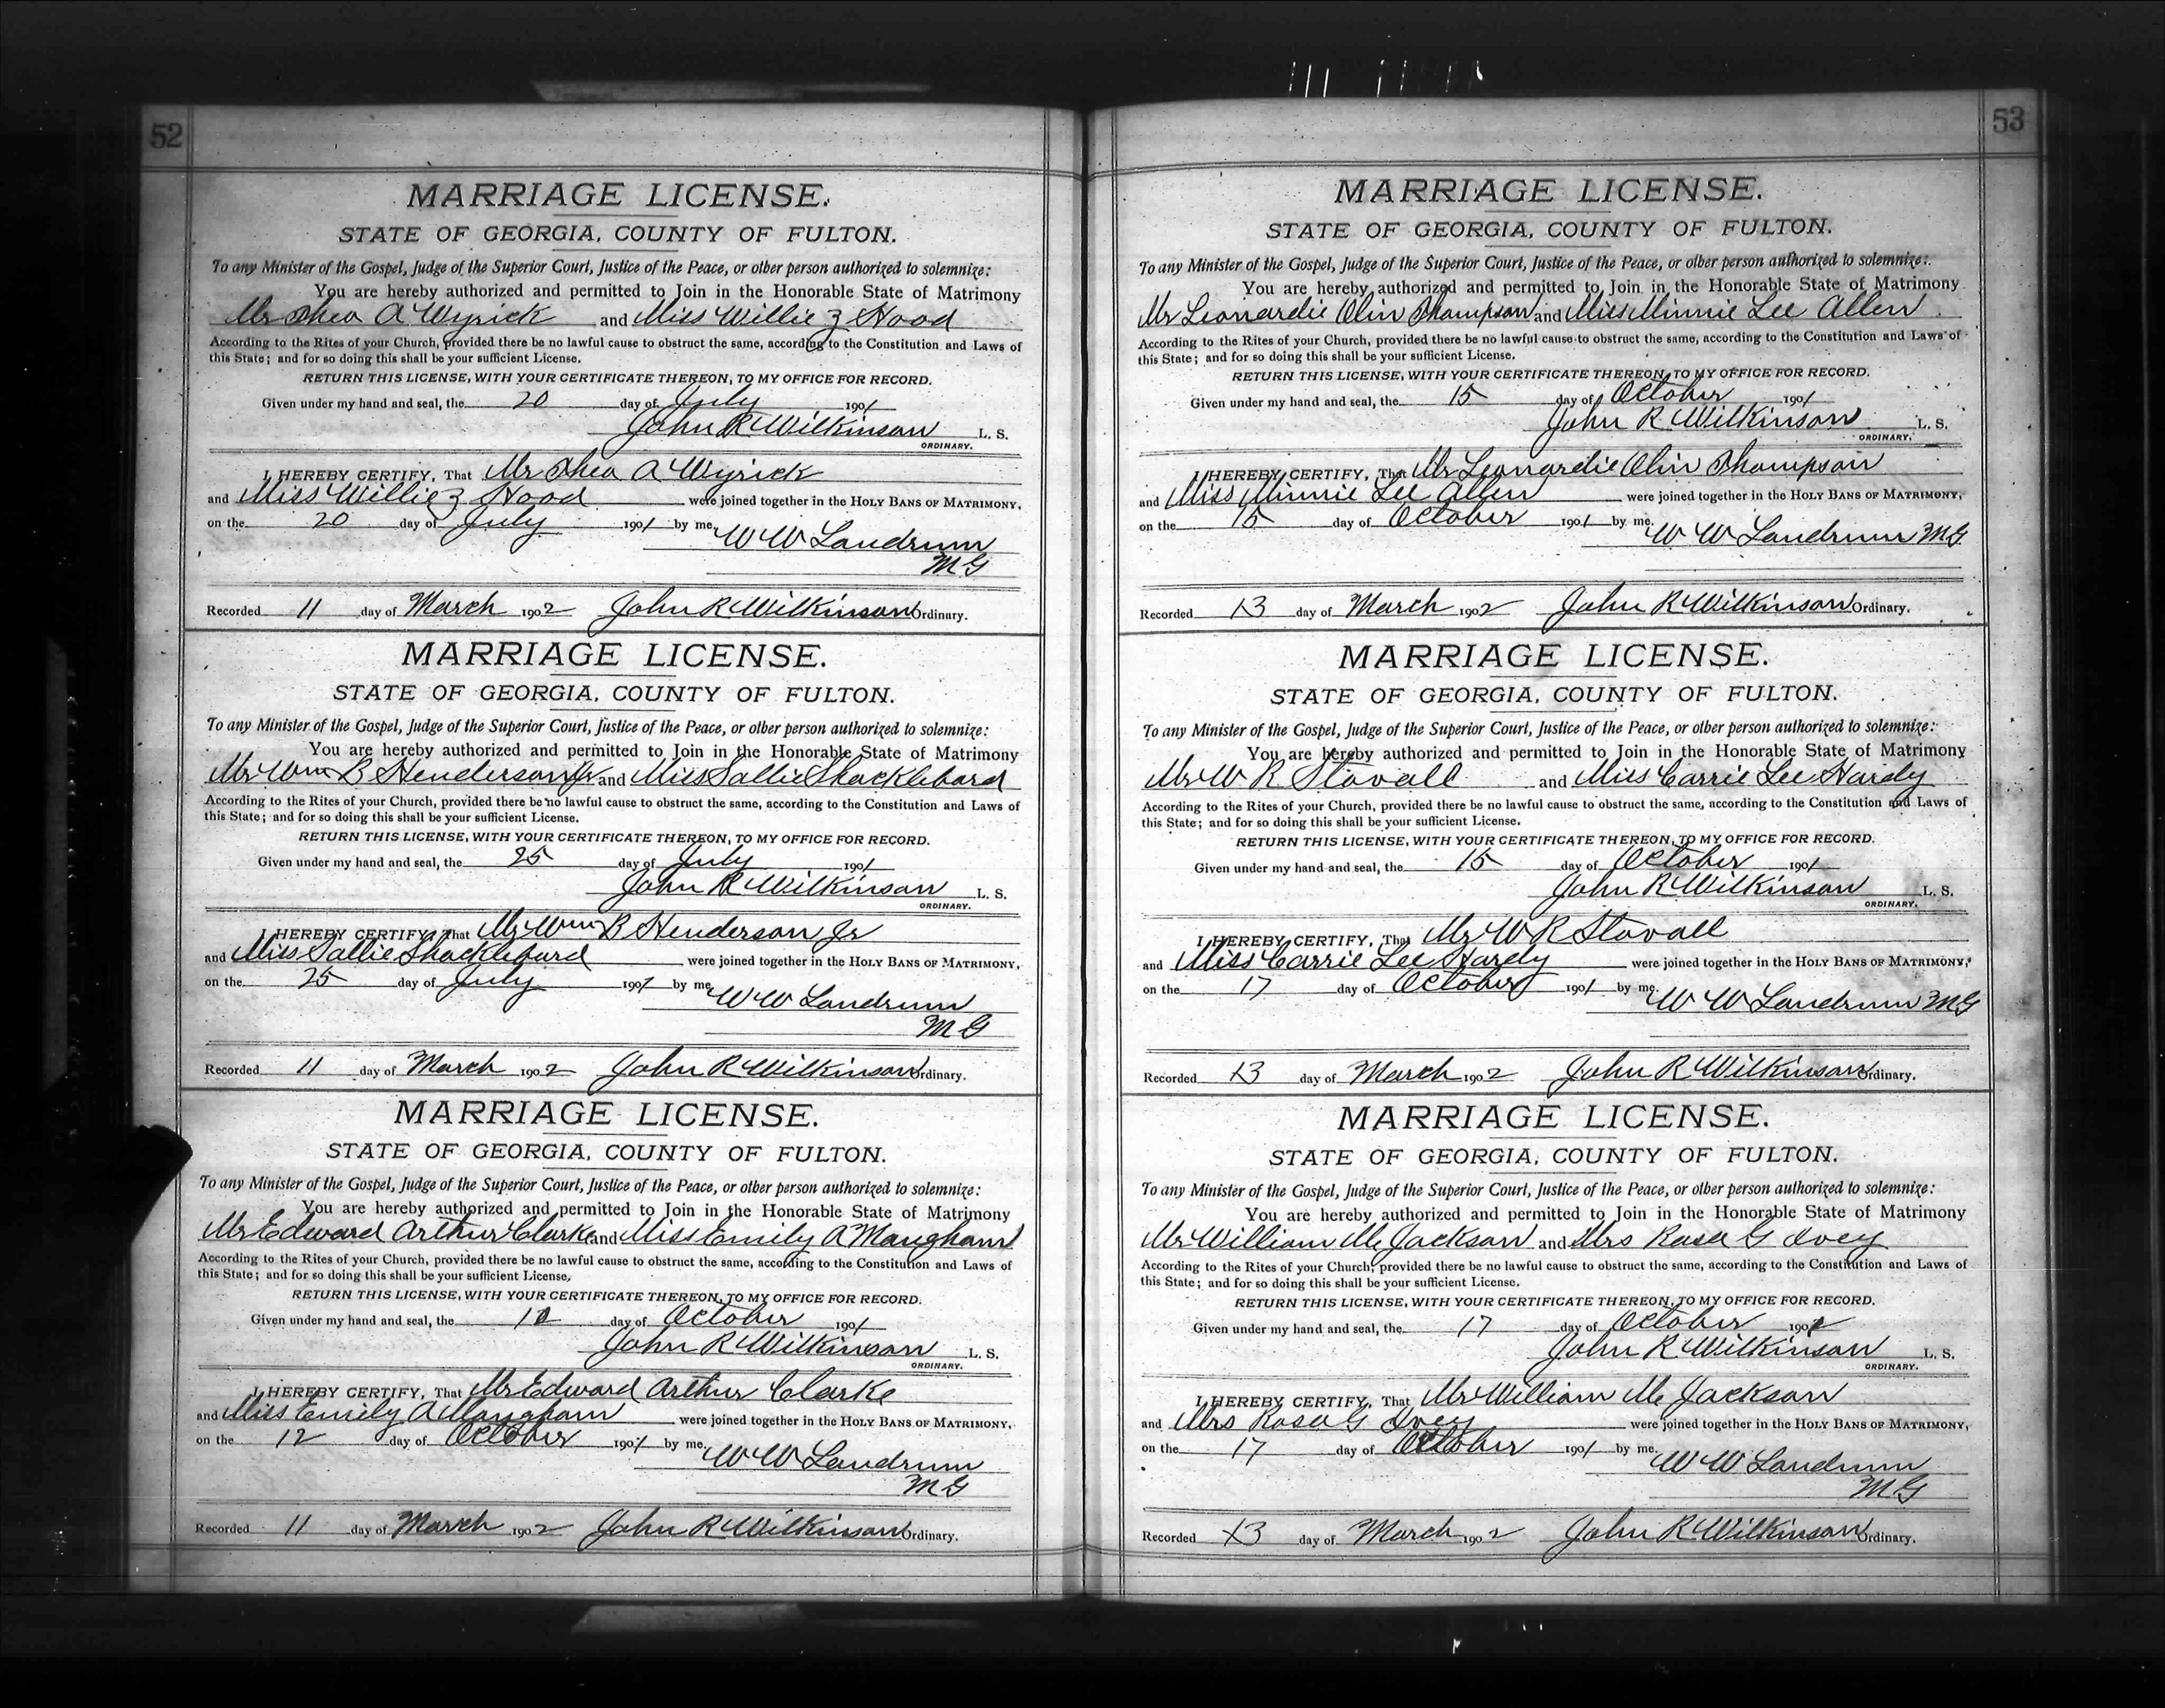 52
MARRIAGE LICENSE.
STATE OF GEORGIA, COUNTY OF FULTON.
To any Minister of the Gospel, Judge of the Superior Court, Justice of the Peace, or other person authorized to solemnize:
You are hereby authorized and permitted to Join in the Honorable State of Matrimony
Mr Theo A Wyrick and Miss Willie Z Hood
According to the Rites of your Church, provided there be no lawful cause to obstruct the same, according to the Constitution and Laws of
this State; and for so doing this shall be your sufficient License.
RETURN THIS LICENSE, WITH YOUR CERTIFICATE THEREON, TO MY OFFICE FOR RECORD.
Given under my hand and seal, the 20 day of July 1901
John R Wilkinson L. S.
ORDINARY.
I HEREBY CERTIFY, That Mr Theo A Wyrick
and Miss Willie Z Hood were joined together in the HOLY BANS OF MATRIMONY,
on the 20 day of July 1901 by me,
W W Landrum
M G
Recorded 11 day of March 1902 John R Wilkinson Ordinary.
MARRIAGE LICENSE.
STATE OF GEORGIA, COUNTY OF FULTON.
To any Minister of the Gospel, Judge of the Superior Court, Justice of the Peace, or other person authorized to solemnize:
You are hereby authorized and permitted to Join in the Honorable State of Matrimony
Mr Wm B Henderson Jr and Miss Sallie Shacklebard
According to the Rites of your Church, provided there be no lawful cause to obstruct the same, according to the Constitution and Laws of
this State; and for so doing this shall be your sufficient License.
RETURN THIS LICENSE, WITH YOUR CERTIFICATE THEREON, TO MY OFFICE FOR RECORD.
Given under my hand and seal, the 25 day of July 1901
John R Wilkinson L. S.
ORDINARY.
I HEREBY CERTIFY, That Mr Wm B Henderson Jr
and Miss Sallie Shacklebard were joined together in the HOLY BANS OF MATRIMONY,
on the 25 day of July 1901 by me,
W W Landrum
M G
Recorded 11 day of March 1902 John R Wilkinson Ordinary.
MARRIAGE LICENSE.
STATE OF GEORGIA, COUNTY OF FULTON.
To any Minister of the Gospel, Judge of the Superior Court, Justice of the Peace, or other person authorized to solemnize:
You are hereby authorized and permitted to Join in the Honorable State of Matrimony
Mr Edward Arthur Clarke and Miss Emily A Mangham
According to the Rites of your Church, provided there be no lawful cause to obstruct the same, according to the Constitution and Laws of
this State; and for so doing this shall be your sufficient License,
RETURN THIS LICENSE, WITH YOUR CERTIFICATE THEREON, TO MY OFFICE FOR RECORD.
Given under my hand and seal, the day of October 1901
John R Wilkinson L. S.
ORDINARY.
I HEREBY CERTIFY, That Mr Edward Arthur Clarke
and Miss Emily A Mangham were joined together in the HOLY BANS OF MATRIMONY,
on the 12 day of October 1901 by me,
W W Landrum
M G
Recorded 11 day of March 1902 John R Wilkinson Ordinary.
53
MARRIAGE LICENSE.
STATE OF GEORGIA, COUNTY OF FULTON.
To any Minister of the Gospel, Judge of the Superior Court, Justice of the Peace, or other person authorized to solemnize:
You are hereby authorized and permitted to Join in the Honorable State of Matrimony
Mr Leonardie Olin Thompson and Miss Minnie Lee Allen
According to the Rites of your Church, provided there be no lawful cause to obstruct the same, according to the Constitution and Laws of
this State; and for so doing this shall be your sufficient License.
RETURN THIS LICENSE, WITH YOUR CERTIFICATE THEREON, TO MY OFFICE FOR RECORD.
Given under my hand and seal, the 15 day of October 1901
John R Wilkinson L. S.
ORDINARY.
I HEREBY CERTIFY, That Mr Leonardie Olin Thompson
and Miss Minnie Lee Allen were joined together in the HOLY BANS OF MATRIMONY,
on the 15 day of October 1901 by me,
W W Landrum M G
Recorded 13 day of March 1902 John R Wilkinson Ordinary.
MARRIAGE LICENSE.
STATE OF GEORGIA, COUNTY OF FULTON.
To any Minister of the Gospel, Judge of the Superior Court, Justice of the Peace, or other person authorized to solemnize:
You are hereby authorized and permitted to Join in the Honorable State of Matrimony
Mr W R Stovall and Miss Carrie Lee Hardy
According to the Rites of your Church, provided there be no lawful cause to obstruct the same, according to the Constitution and Laws of
this State; and for so doing this shall be your sufficient License.
RETURN THIS LICENSE, WITH YOUR CERTIFICATE THEREON, TO MY OFFICE FOR RECORD.
Given under my hand and seal, the 15 day of October 1901
John R Wilkinson L. S.
ORDINARY.
I HEREBY CERTIFY, That Mr W R Stovall
and Miss Carrie Lee Hardy were joined together in the HOLY BANS OF MATRIMONY,
on the 17 day of October 1901 by me,
W W Landrum M G
Recorded 13 day of March 1902 John R Wilkinson Ordinary.
MARRIAGE LICENSE.
STATE OF GEORGIA, COUNTY OF FULTON.
To any Minister of the Gospel, Judge of the Superior Court, Justice of the Peace, or other person authorized to solemnize:
You are hereby authorized and permitted to Join in the Honorable State of Matrimony
Mr William Mc Jackson and Mrs Rosa G Ivey
According to the Rites of your Church, provided there be no lawful cause to obstruct the same, according to the Constitution and Laws of
this State; and for so doing this shall be your sufficient License.
RETURN THIS LICENSE, WITH YOUR CERTIFICATE THEREON, TO MY OFFICE FOR RECORD.
Given under my hand and seal, the 17 day of October 1901
John R Wilkinson L. S.
ORDINARY.
I HEREBY CERTIFY, That Mr William Mc Jackson
and Mrs Rosa G Ivey were joined together in the HOLY BANS OF MATRIMONY,
on the 17 day of October 1901 by me,
W W Landrum
M G
Recorded 13 day of March 1902 John R Wilkinson Ordinary.